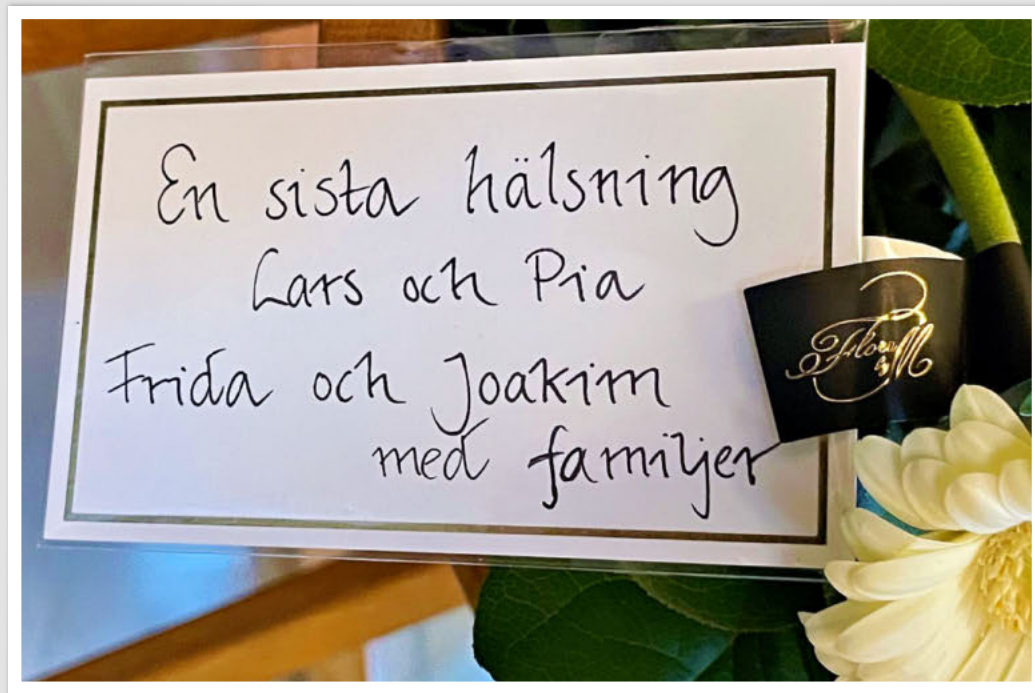 En sista hälsning
Lars och Pia
Frida och Joakim
med familjer
Flora
by M